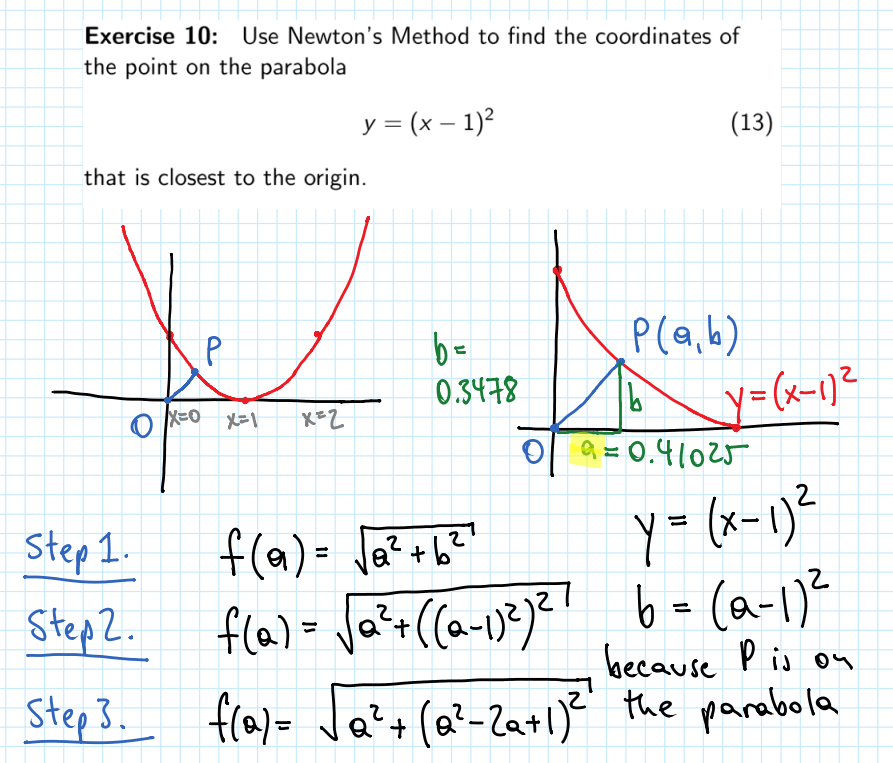 Exercise 10: Use Newton's Method to find the coordinates of
the point on the parabola
y = (x − 1)² (13)
that is closest to the origin.
P
O
x=0 x=1 x=2
b =
0.3478
P(a,b)
b
y=(x-1)²
O
a = 0.41025
Step 1. f(a) = √(a² + b²)
y = (x-1)²
Step 2. f(a) = √(a²+((a-1)²)²)
b = (a-1)²
because P is on
the parabola
Step 3. f(a) = √(a² + (a²-2a+1)²)